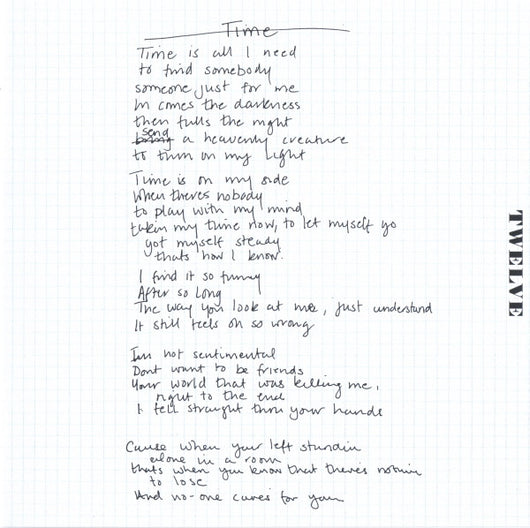 Time
Time is all I need
to find somebody
someone just for me
In comes the darkness
then falls the night
send
bring a heavenly creature
to turn on my light
Time is on my side
When theres nobody
to play with my mind
taken my time now, to let myself go
got myself steady
thats how I know.
I find it so funny
After so long
The way you look at me, just understand
It still feels oh so wrong
Im not sentimental
Dont want to be friends
Your world that was killing me,
right to the end
I fell straight thru your hands
Cause when your left standin
alone in a room
thats when you know that theres nothin
to lose
And no-one cares for you
TWELVE